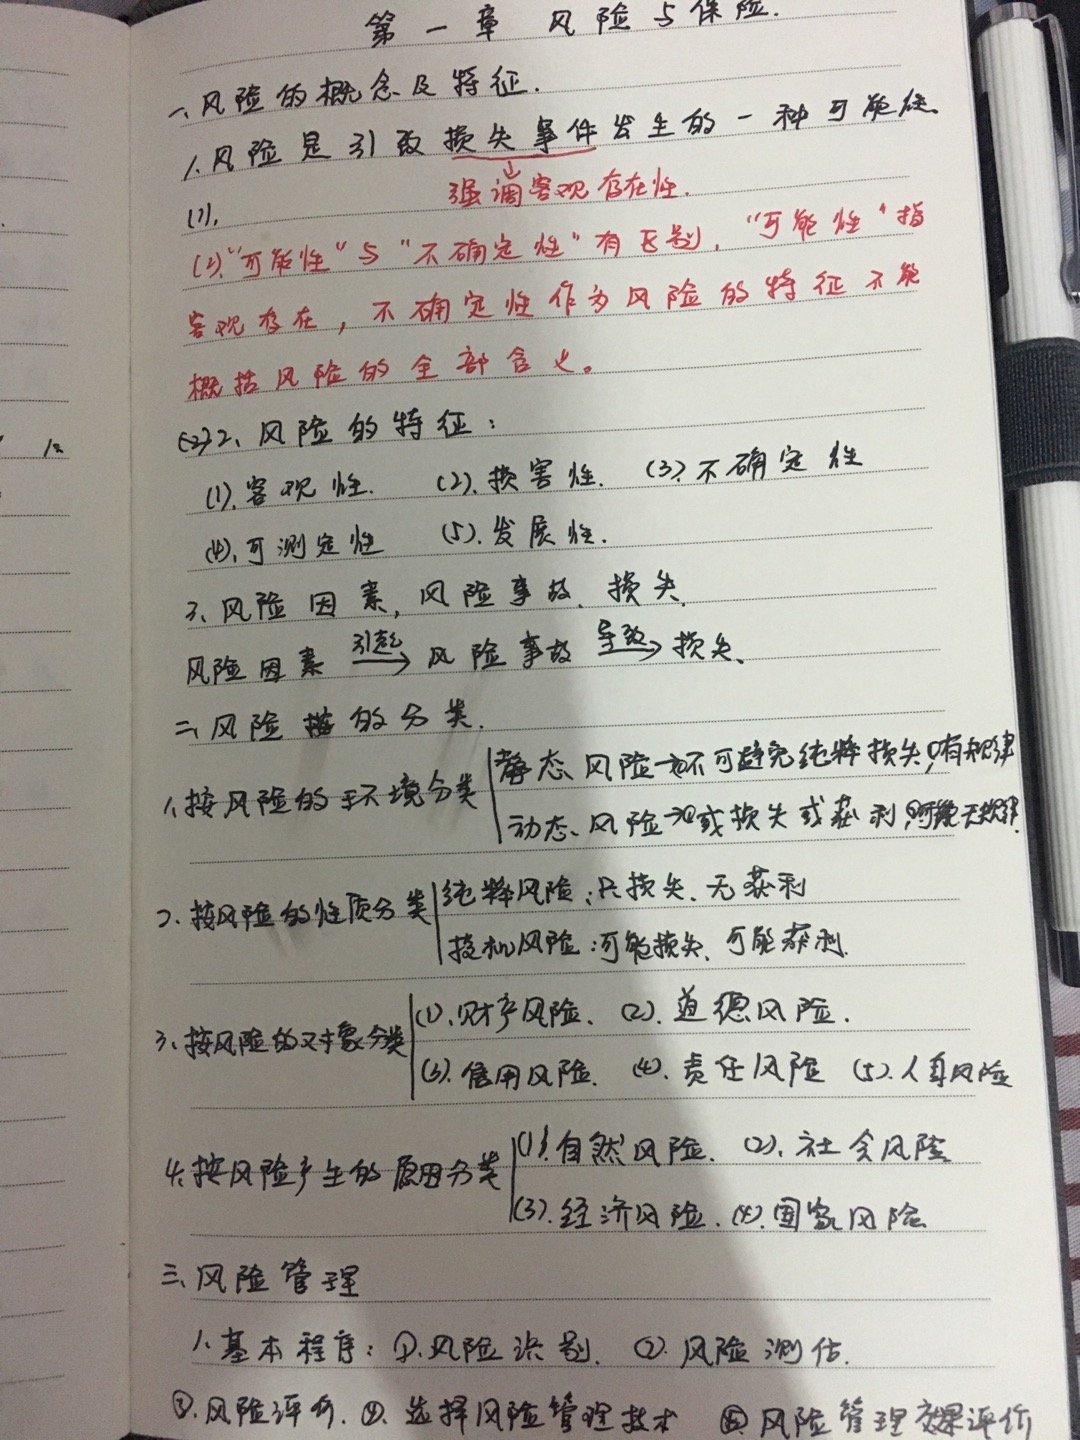 第一章 风险与保险.
一、风险的概念及特征.
1、风险是引致损失事件发生的一种可能性.
强调客观存在性.
(1).
(2)、"可能性"与"不确定性"有区别,"可能性"指
客观存在,不确定性作为风险的特征不能
概括风险的全部含义。
2、风险的特征:
(1)、客观性. (2)、损害性. (3)、不确定性
(4)、可测定性 (5)、发展性.
3、风险因素,风险事故、损失.
风险因素 引起→ 风险事故 导致→ 损失、
二、风险的分类.
1、按风险的环境分类
静态风险 不可避免纯粹损失,有规律
动态风险 或损失或获利, 无规律.
2、按风险的性质分类
纯粹风险:只损失、无获利
投机风险:可能损失、可能获利.
3、按风险的对象分类
(1)、财产风险、 (2)、道德风险.
(3)、信用风险. (4)、责任风险 (5)、人身风险
4、按风险产生的原因分类
(1)自然风险. (2)、社会风险
(3)、经济风险、(4)、国家风险
三、风险管理
1、基本程序:①、风险识别. ②、风险测估.
③、风险评价、④、选择风险管理技术 ⑤、风险管理效果评价